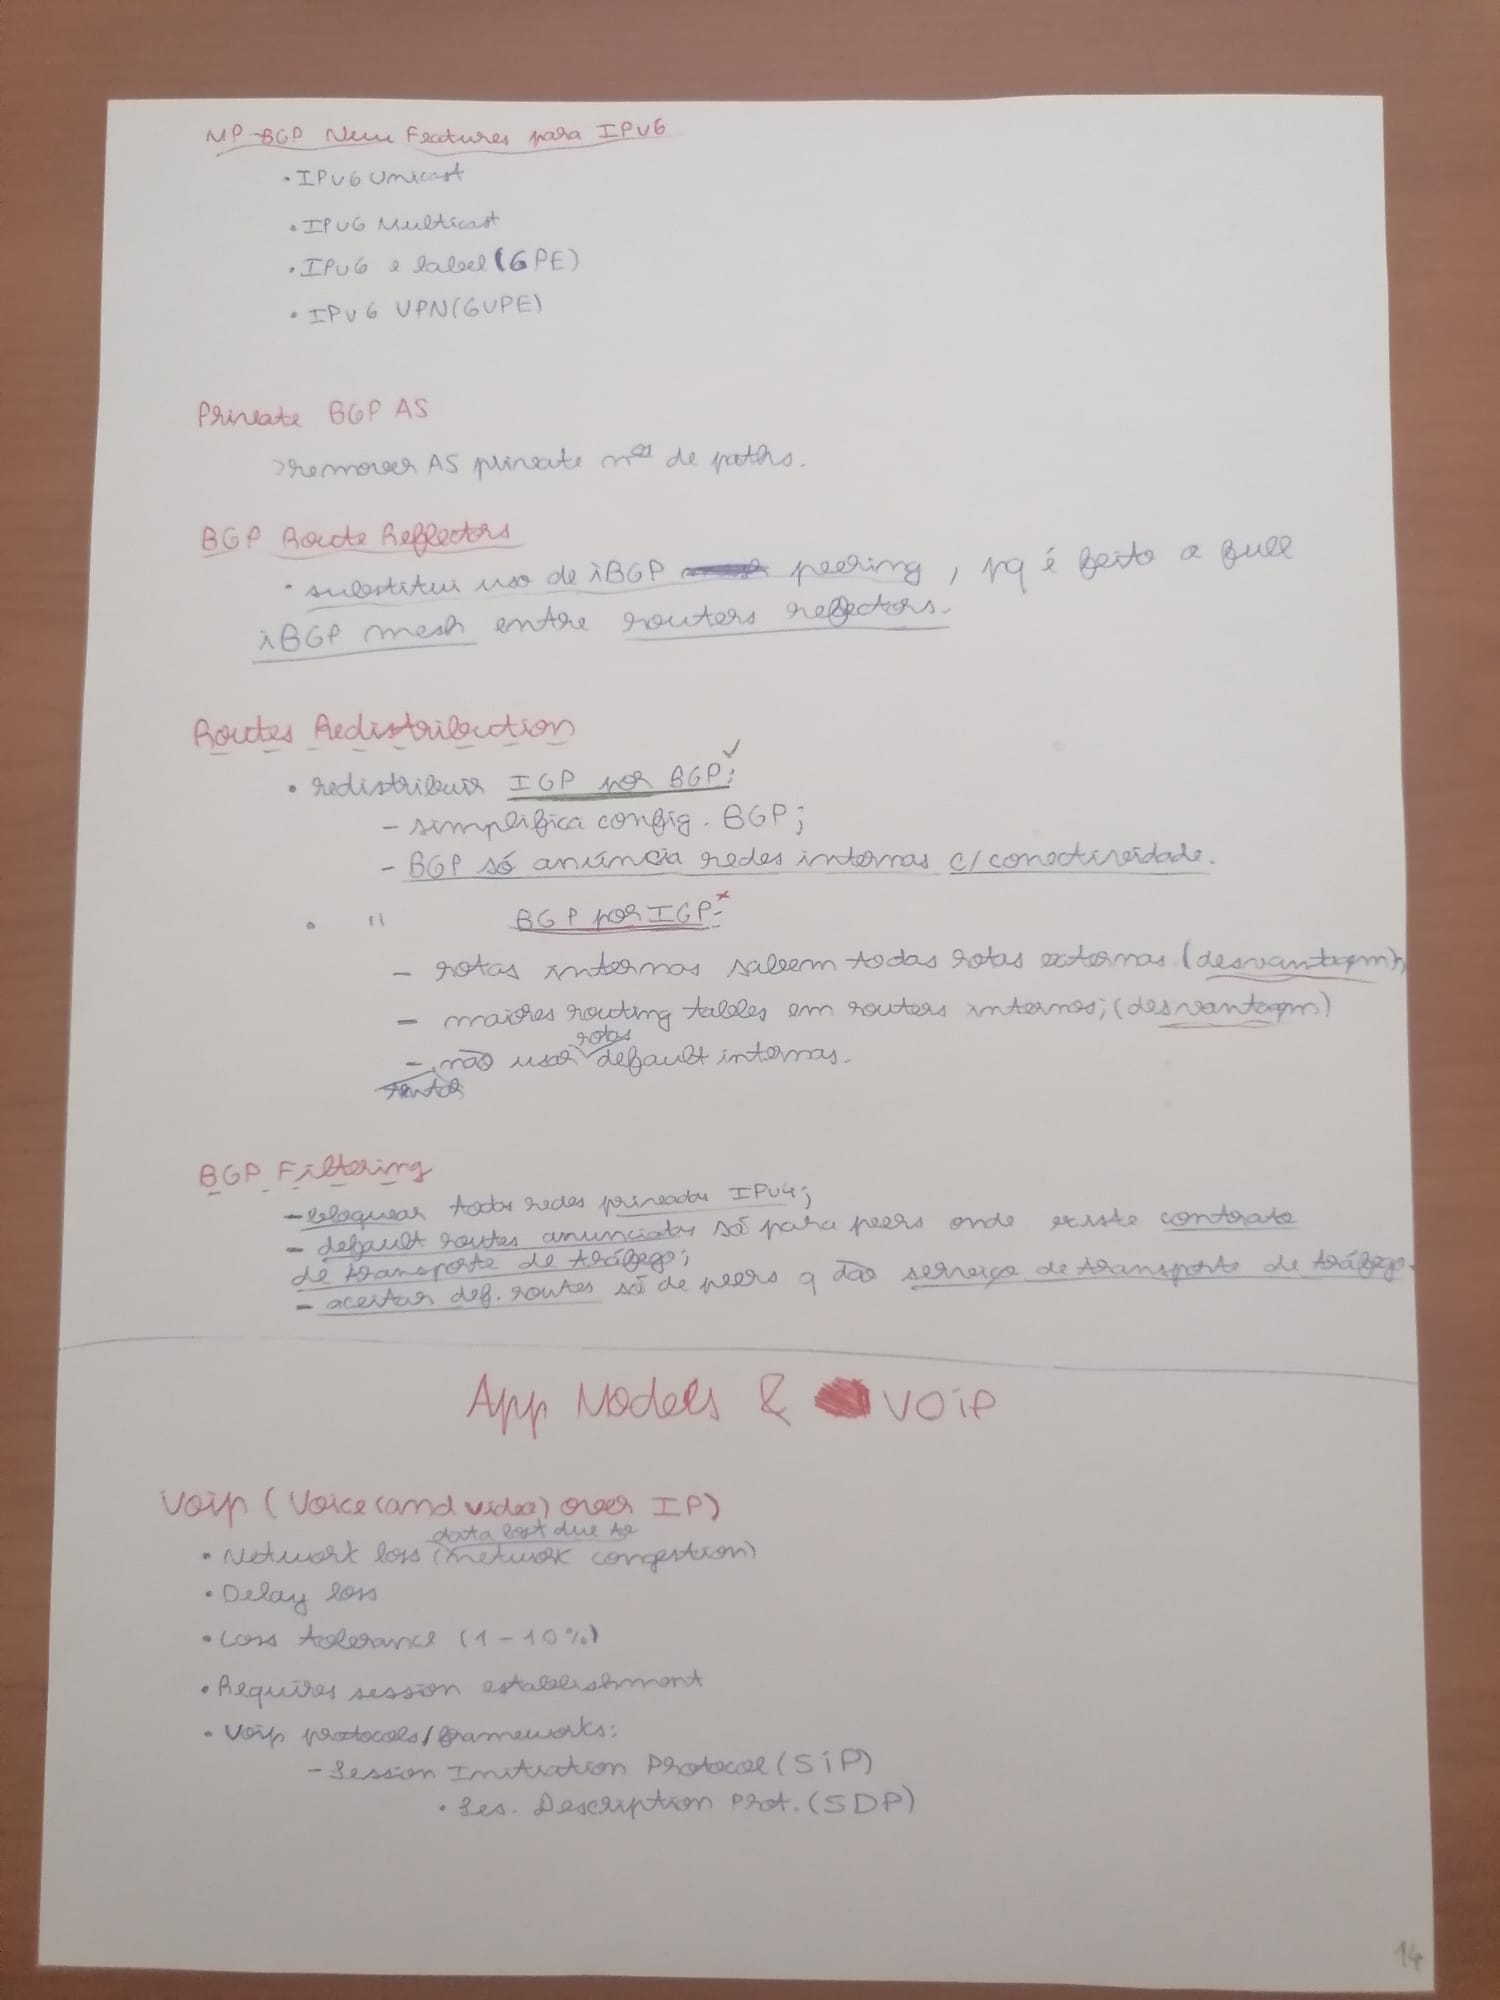 MP-BGP New Features para IPv6
• IPv6 Unicast
• IPv6 Multicast
• IPv6 e label (6PE)
• IPv6 VPN(6VPE)
Private BGP AS
> remover AS private nºs de paths.
BGP Route Reflectors
• substitui uso de iBGP peering, pq é feito a full
iBGP mesh entre routers refectors.
Routes Redistribution
• redistribuir IGP por BGP: ✓
- simplifica config. BGP;
- BGP só anúncia redes internas c/ conectividade.
• " BGP por IGP- x
- rotas internas sabem todas rotas externas (desvantagem);
- maiores routing tables em routers internos; (desvantagem)
- não usar rotas default internas.
BGP Filtering
- bloquear todas redes privadas IPv4;
- default routes anunciadas só para peers onde existe contrato
de transporte de tráfego;
- aceitar def. routes só de peers q dão serviço de transporte de tráfego.
App Models & VOiP
Voip (Voice (and video) over IP)
• Network loss (data lost due to network congestion)
• Delay loss
• Loss tolerance (1-10%)
• Requires session establishment
• Voip protocols/frameworks:
- Session Initiation Protocol (SiP)
• Ses. Description Prot. (SDP)
14